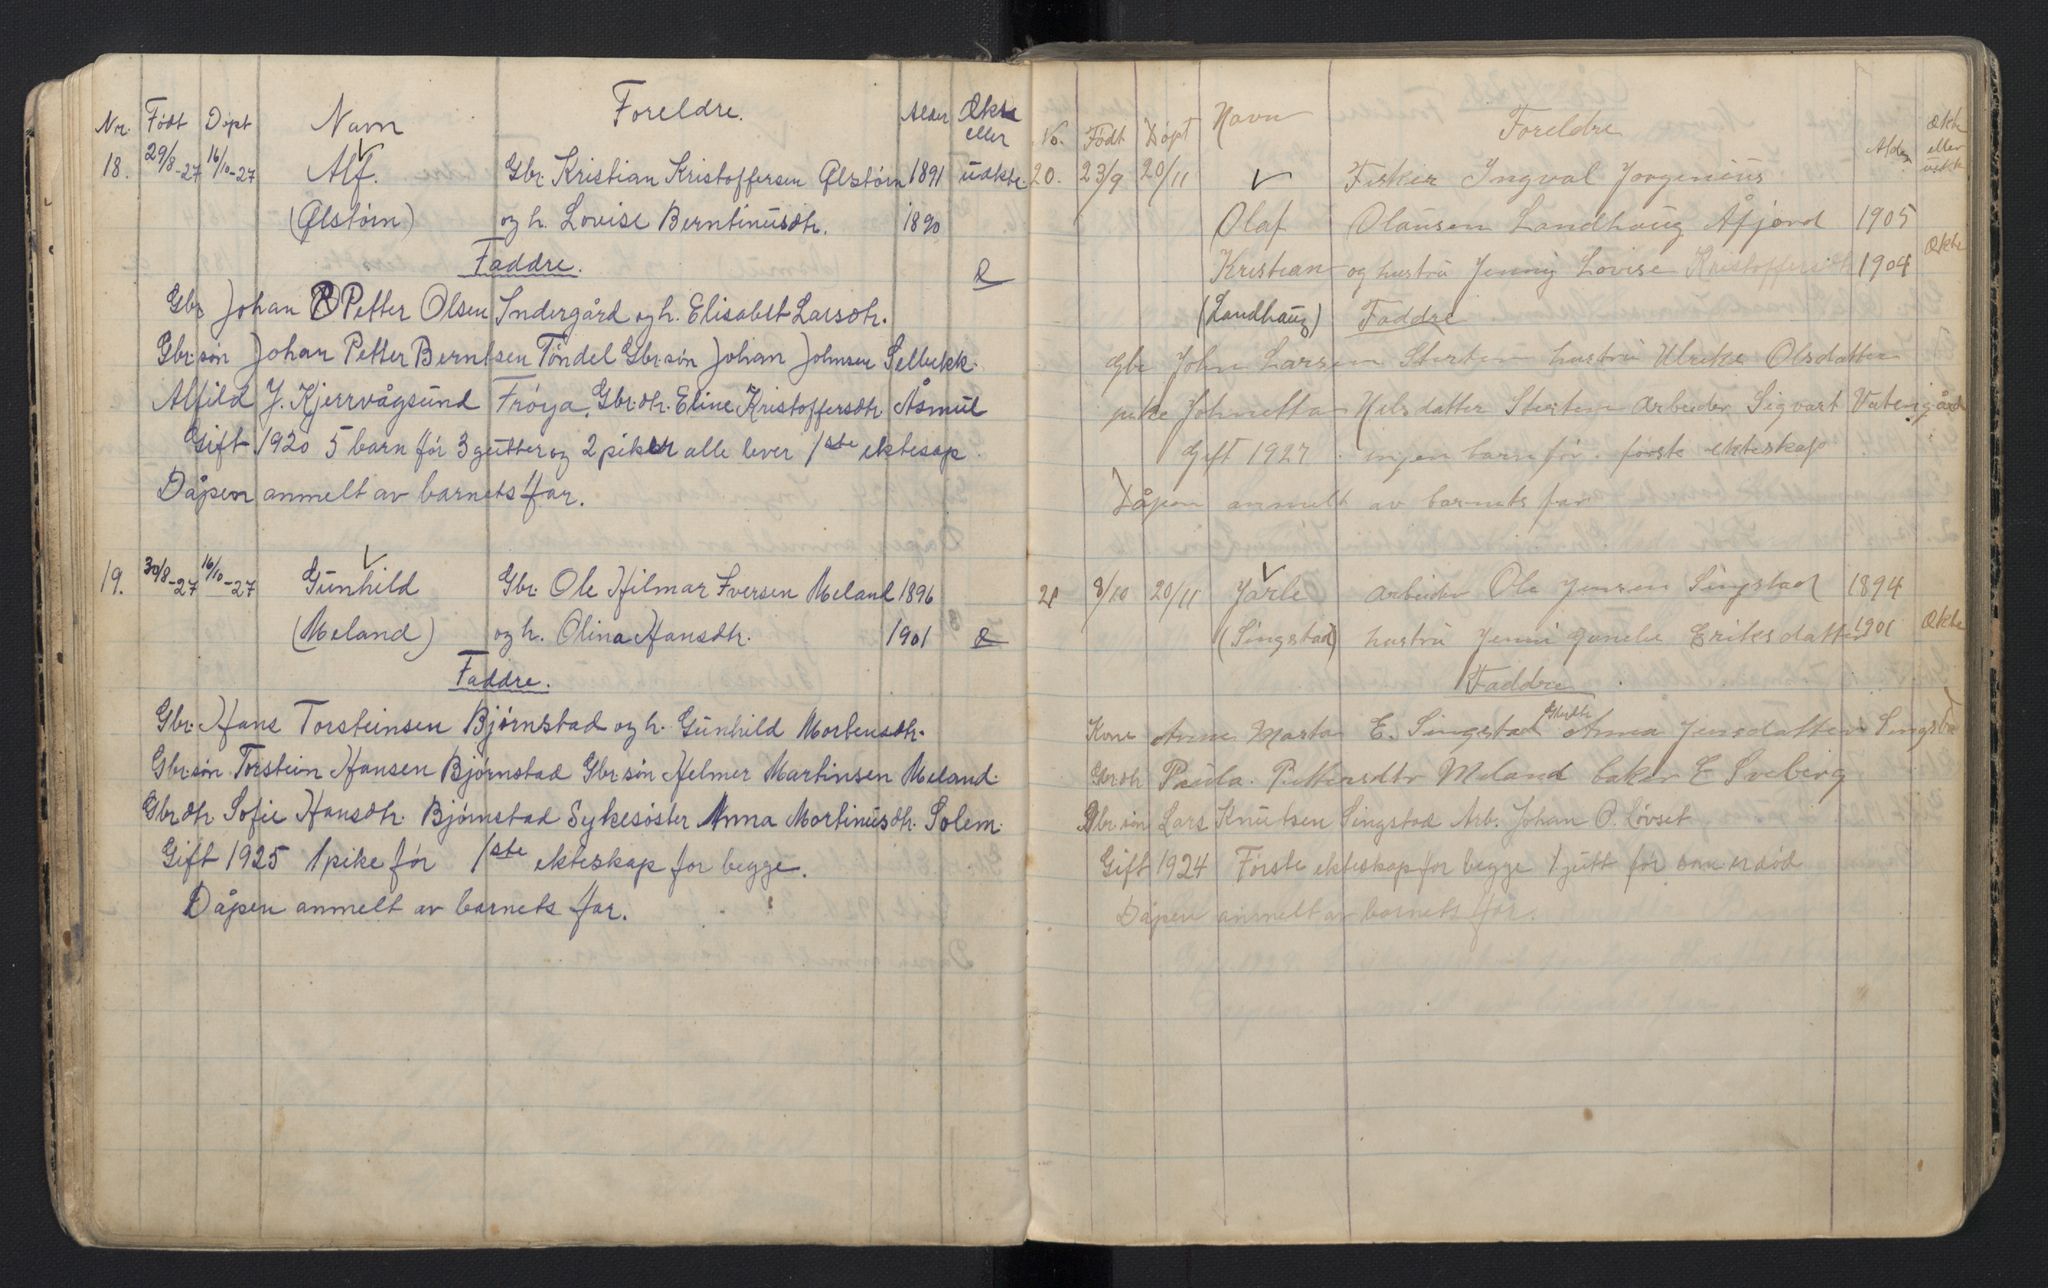 Nr. Født Døpt Navn Foreldre. Alder Ekte eller uekte.
18. 29/8-27 16/10-27 Alf. Gbr. Kristian Kristoffersen Ølstørn 1891
(Ølstørn) og h. Lovise Berntinusdtr. 1890
Faddre. E
Gbr Johan Petter Olsen Indergård og h. Elisabet Larsdtr.
Gbr.søn Johan Petter Berntsen Tøndel Gbr.søn Johan Johnsen Selbekk.
Alfild J. Kjerrvågsund Frøya. Gbr.dtr. Eline Kristoffersdtr. Åsmul
Gift 1920 5 barn før 3 gutter og 2 piker alle lever 1ste ektesap.
Dåpen anmelt av barnets far.
19. 30/8-27 16/10-27 Gunhild Gbr. Ole Hilmar Iversen Meland 1896
(Meland) og h. Olina Hansdtr. 1901 E
Faddre.
Gbr. Hans Torsteinsen Bjørnstad og h. Gunhild Mortensdtr.
Gbr.søn Torstein Hansen Bjørnstad Gbr.søn Helmer Martinsen Meland.
Gbr.dtr Sofie Hansdtr. Bjørnstad Sykesøster Anna Mortinusdtr. Solem.
Gift 1925 1 pike før 1ste ekteskap for begge.
Dåpen anmelt av barnets far.
No. Født Døpt Navn Foreldre Alder Ekte eller uekte
20. 23/9 20/11 Fisker Ingval Jørgenius
Olaf Olausen Landhaug Åfjord 1905
Kristian og hustru Jenny Lovise Kristoffersdt 1904 Ekte
(Landhaug) Faddre
Gbr John Larsen Sterten hustru Ulrike Olsdatter
pike Johnetta Nilsdatter Sterten Arbeider Sigvart Vatingård
Gift 1927. ingen barn før. første ekteskap
Dåpen anmelt av barnets far
21 8/10 20/11 Jarle Arbeider Ole Jensen Singstad 1894
(Singstad) hustru Jenni Eriksdatter 1901 Ekte
Faddere
Kone Anne Marta E. Singstad Gbrdtr Anna Jensdatter Singstad
Gbr.dtr Paula Pettersdtr Meland baker E Sveberg
Gbr.søn Lars Knutsen Singstad Arb. Johan O. Løvset
Gift 1924 Første ekteskap for begge 1 gutt før som er død
Dåpen anmelt av barnets far.